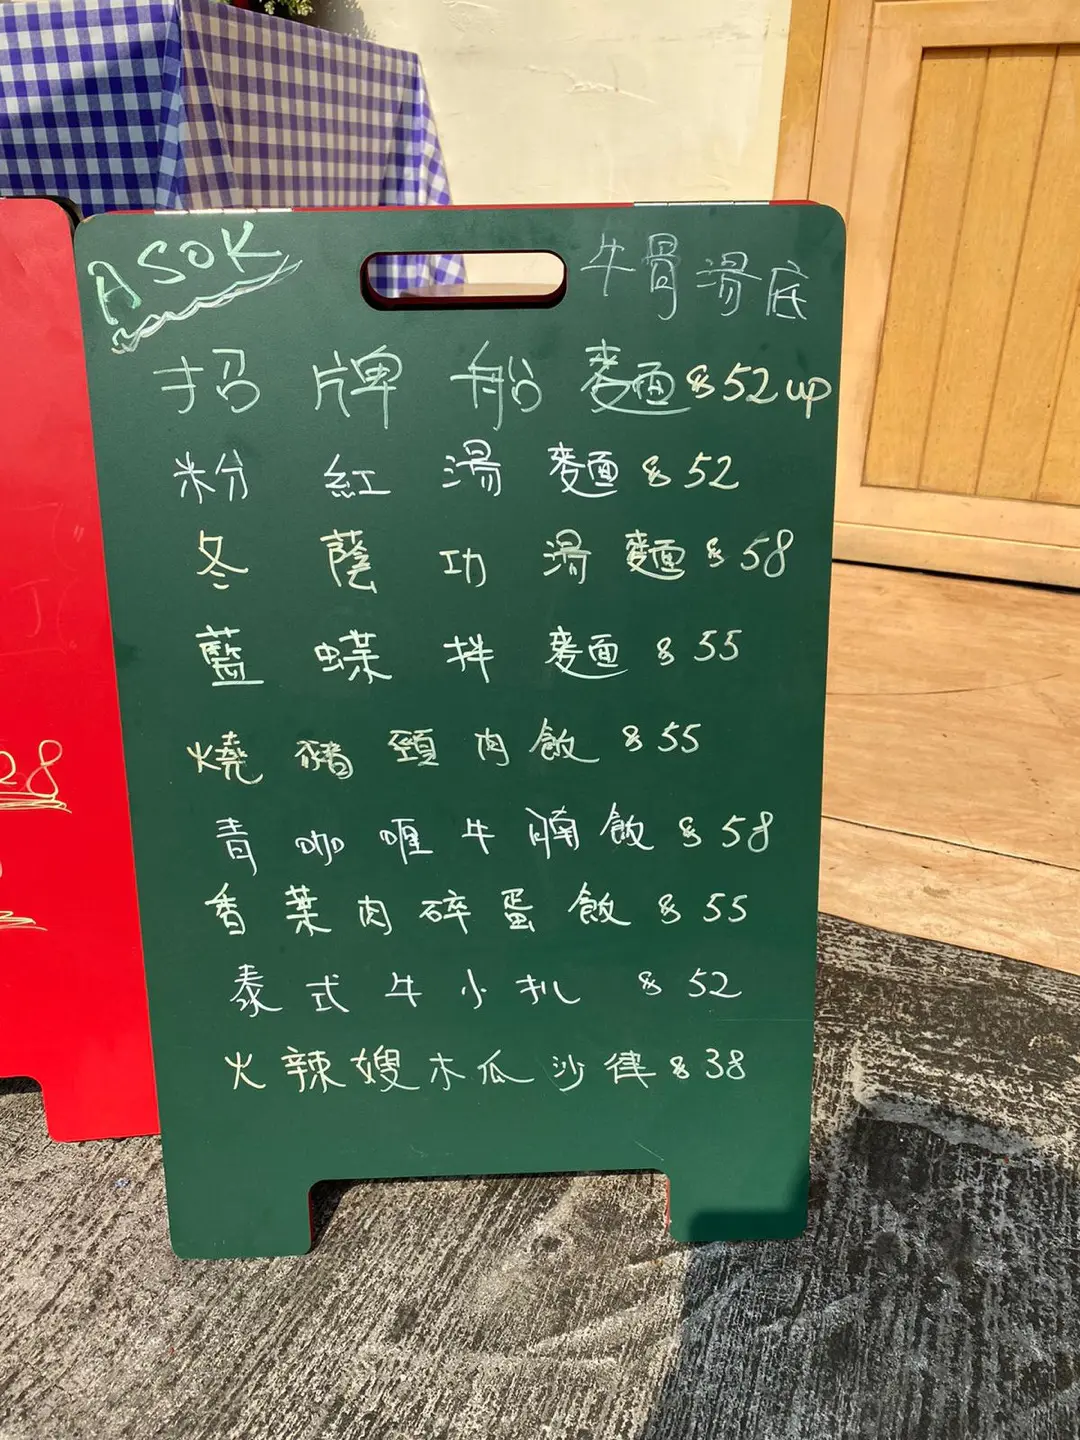 ASOK
牛骨湯底
招牌船麵 $52 up
粉紅湯麵 $52
冬蔭功湯麵 $58
藍蝶拌麵 $55
燒豬頸肉飯 $55
青咖喱牛腩飯 $58
香葉肉碎蛋飯 $55
泰式牛小扒 $52
火辣嫂木瓜沙律 $38
28